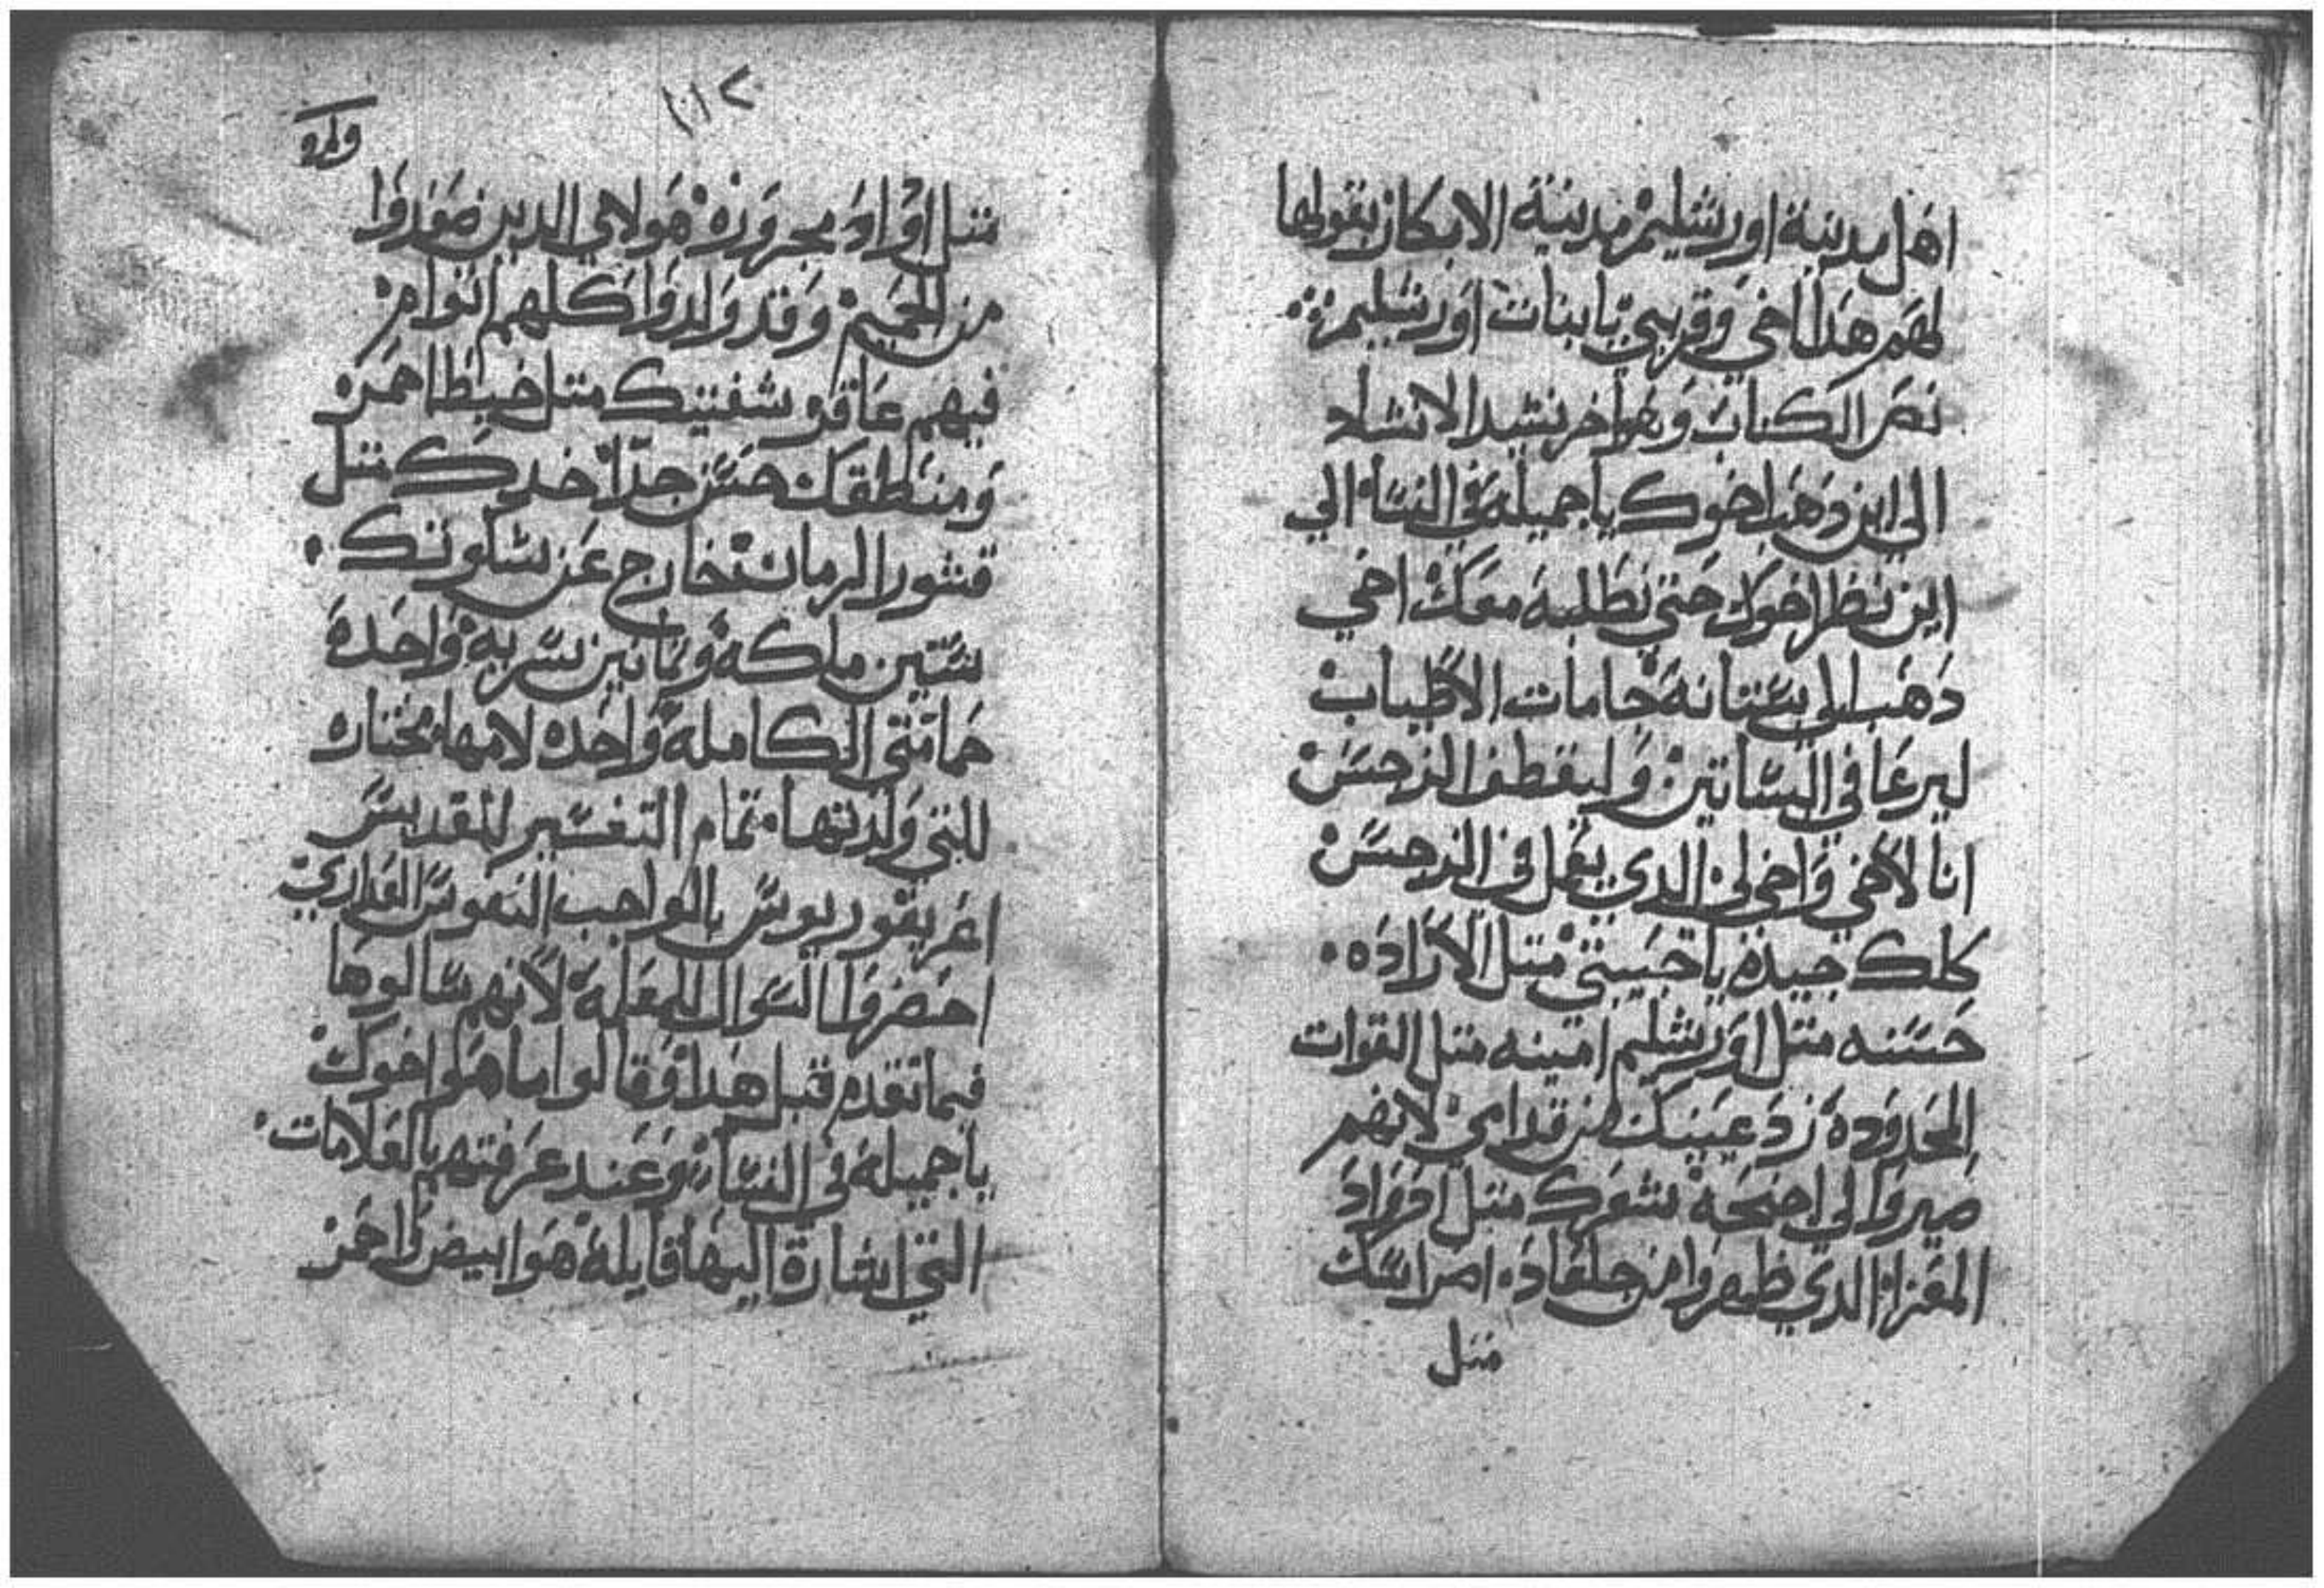 اهل مدينة اورشليم مدينة الابكار بقولها
لهم هدا اخي وقريبي يا بنات اورشليم
نص الكتاب وهوا خر نشيد الانشاد
الي اين دهب اخوك يا جميلة في النسا الي
اين نظر اخوك حتي نطلبه معك اخي
دهب الي بستانه جامات الاطياب
ليرعا في البساتين وليقطف النرجس
انا لاخي واخي لي الدي يعمل في النرجس
كلك جيده يا حبيبتي متل الاراده
حسنه متل اورشليم امينه متل القوات
المحدوده زد عينيك من قدامي لانهم
صيروا لي اجنحه شعرك متل ادواد
المعزا الدي ظهروا من جلعاد اضراسك
متل
١١٢
متل اواد مجروره هولاي الدين صعدوا
من الحميم وقد والدوا كلهم اتوام
فيهم عاقر شفتيك متل خيط احمر
ومنطقك حسن جدا خدك متل
قشور الرمان خارج عن سكوتك
ستين ملكه وتمانين سريه واحده
حمامتي الكامله واحده لامها مختاره
للتي ولدتها تمام التفسير للقديس
اغريغوريوس بالواجب النفوس العداري
احضروا السوال للمعلمة لانهم سالوها
فيما تقدم قبل هدا وقالوا ما هوا اخوك
يا جميله في النسا وعند عرفتهم بالعلامات
التي اشارة اليها قايلة هوا ابيض واحمر